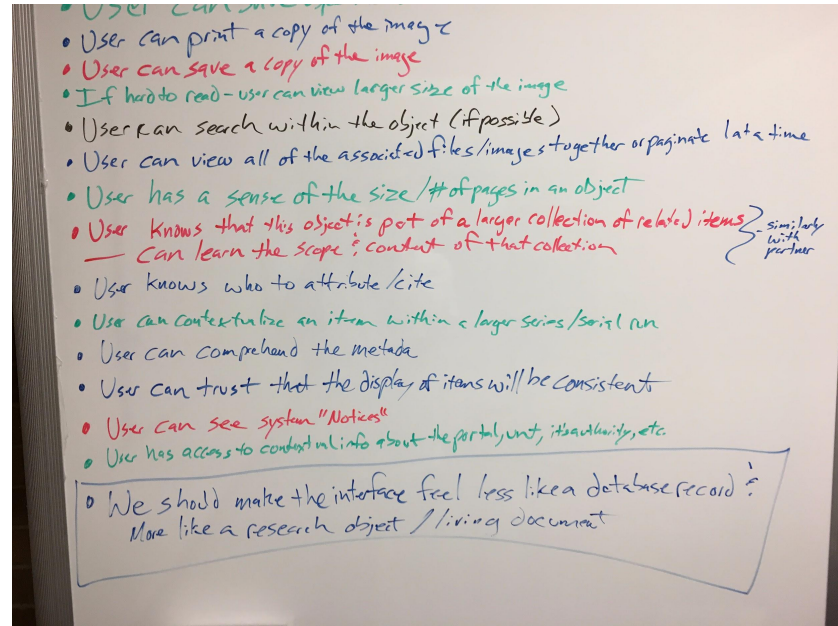 User can
• User can print a copy of the image
• User can save a copy of the image
• If hard to read - user can view larger size of the image
• User can search within the object (if possible)
• User can view all of the associated files/images together or paginate 1 at a time
• User has a sense of the size/# of pages in an object
• User knows that this object is pot of a larger collection of related items
— can learn the scope & content of that collection
- similarly
with
partner
• User knows who to attribute/cite
• User can contextualize an item within a larger series/serial run
• User can comprehend the metada
• User can trust that the display of items will be consistent
• User can see system "Notices"
• User has access to contextual info about the portal, unt, it's authority, etc.
• We should make the interface feel less like a database record &
More like a research object / living document